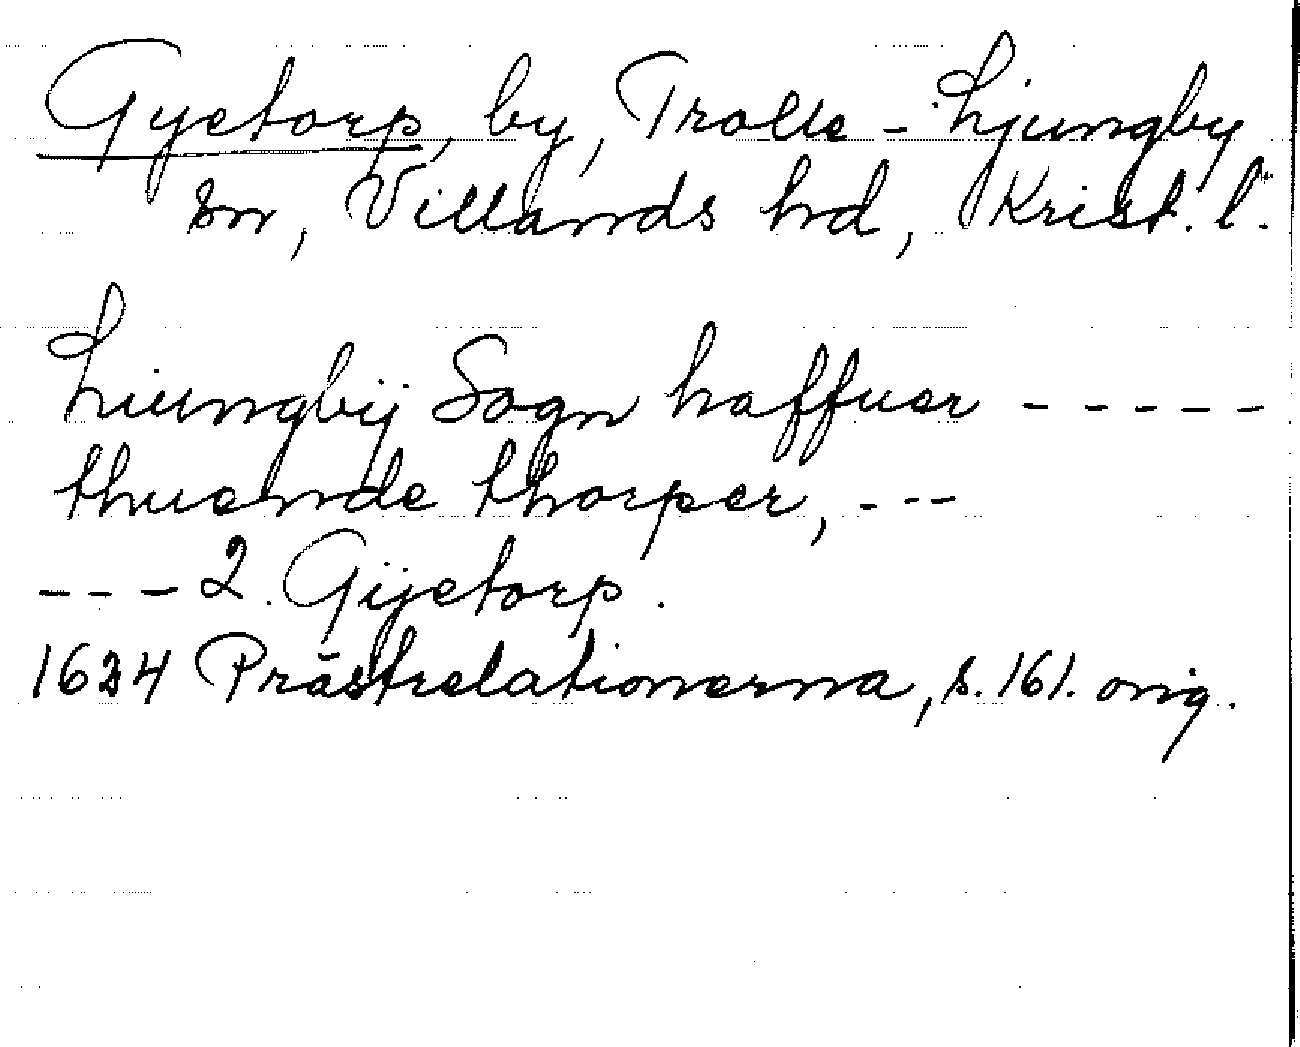 Gyetorp, by, Trolle-Ljungby
sn, Villands hd, Krist. l.
Liungbÿ Sogn haffuer -----
thuende thorper, ---
--- 2. Gÿetorp.
1624 Prästrelationerna, s. 161. orig.